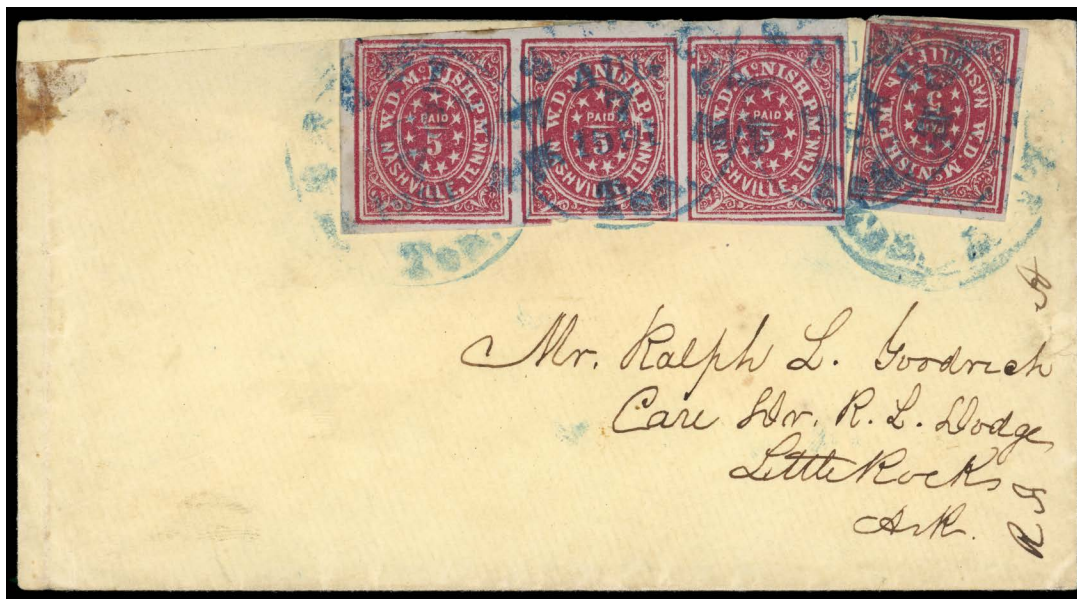 W.D. McNISH, P.M.
PAID
5
NASHVILLE, TENN.
W.D. McNISH, P.M.
PAID
5
NASHVILLE, TENN.
W.D. McNISH, P.M.
PAID
5
NASHVILLE, TENN.
W.D. McNISH, P.M.
PAID
5
NASHVILLE, TENN.
Ten.
Ten.
Ten.
Mr. Ralph L. Goodrich
Care Dr. R. L. Dodge
Little Rock
Ark.